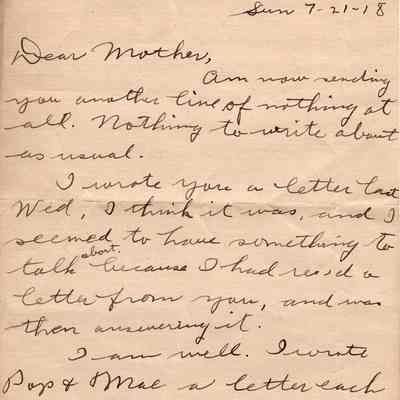 Sun 7-21-18
Dear Mother,
Am now sending
you another line of nothing at
all. Nothing to write about
as usual.
I wrote you a letter last
Wed, I think it was, and I
seemed to have something to
talk about because I had rec'd a
letter from you, and was
then answering it.
I am well. I wrote
Pop & Mae a letter each